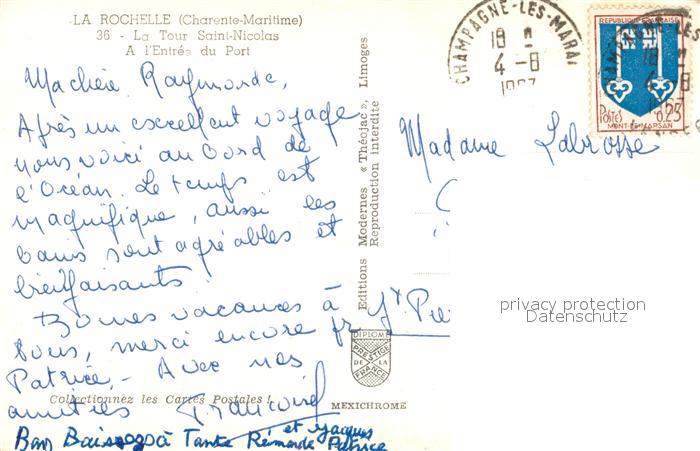 LA ROCHELLE (Charente-Maritime)
36 - La Tour Saint-Nicolas
A l'Entrée du Port
Ma chère Raymonde,
Après un excellent voyage
nous voici au bord de
l'Océan. Le temps est
magnifique, aussi les
bains sont agréables et
bienfaisants.
Bonnes vacances à
tous, merci encore pr
Patrice. - Avec nos
amitiés
Collectionnez les Cartes Postales !
et Jacques
à Tante Patrice
Editions Modernes « Théojac », Limoges
Reproduction interdite
DIPLOME
PRESTIGE
DE LA
FRANCE
MEXICHROME
CHAMPAGNE-LES-MARAI
18 H
4-8
REPUBLIQUE FRANÇAISE
POSTES 0,25
MONT-DE-MARSAN
4-8
Madame Labrosse
St Pie
privacy protection
Datenschutz